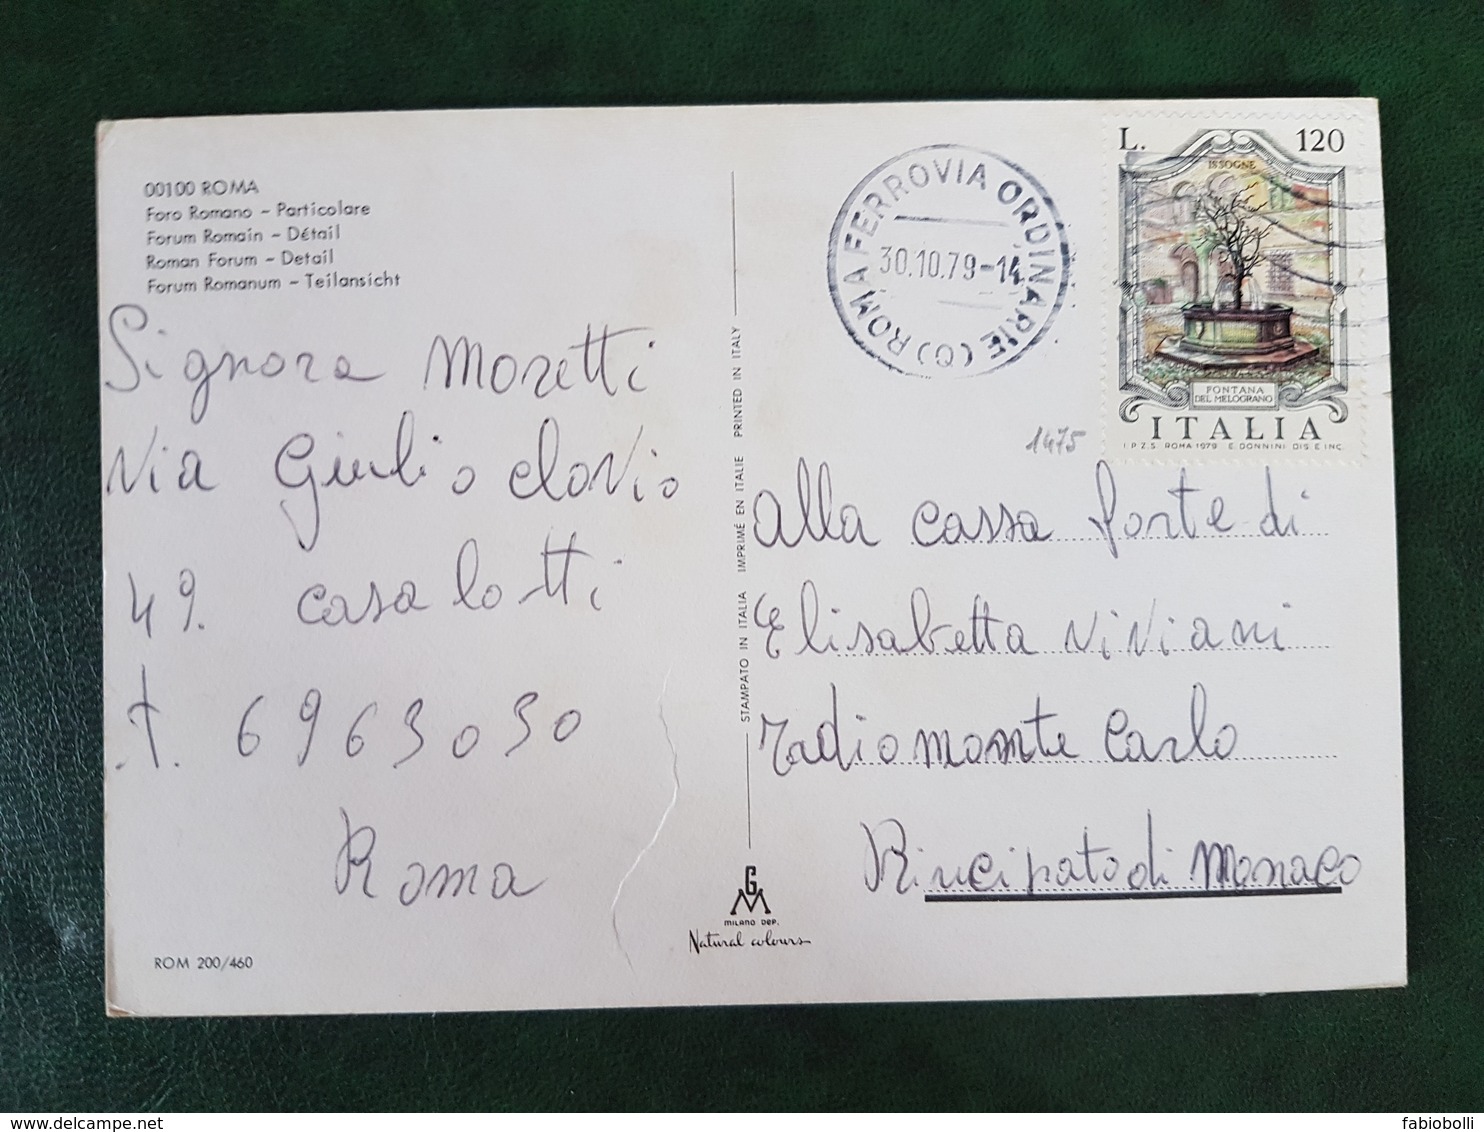 00100 ROMA
Foro Romano - Particolare
Forum Romain - Détail
Roman Forum - Detail
Forum Romanum - Teilansicht
Signora Moretti
Via Giulio Clovio
49. Casalotti
t. 6963030
Roma
ROM 200/460
STAMPATO IN ITALIA IMPRIMÉ EN ITALIE PRINTED IN ITALY
GM
MILANO DEP.
Natural colours
ROMA FERROVIA ORDINARIE (O)
30.10.79-14
L. 120
ISSOGNE
FONTANA
DEL MELOGRANO
ITALIA
I.P.Z.S. ROMA 1979 E. DONNINI DIS. E INC.
1475
alla cassa forte di
Elisabetta Viviani
radio monte Carlo
Principato di Monaco
fabiobolli